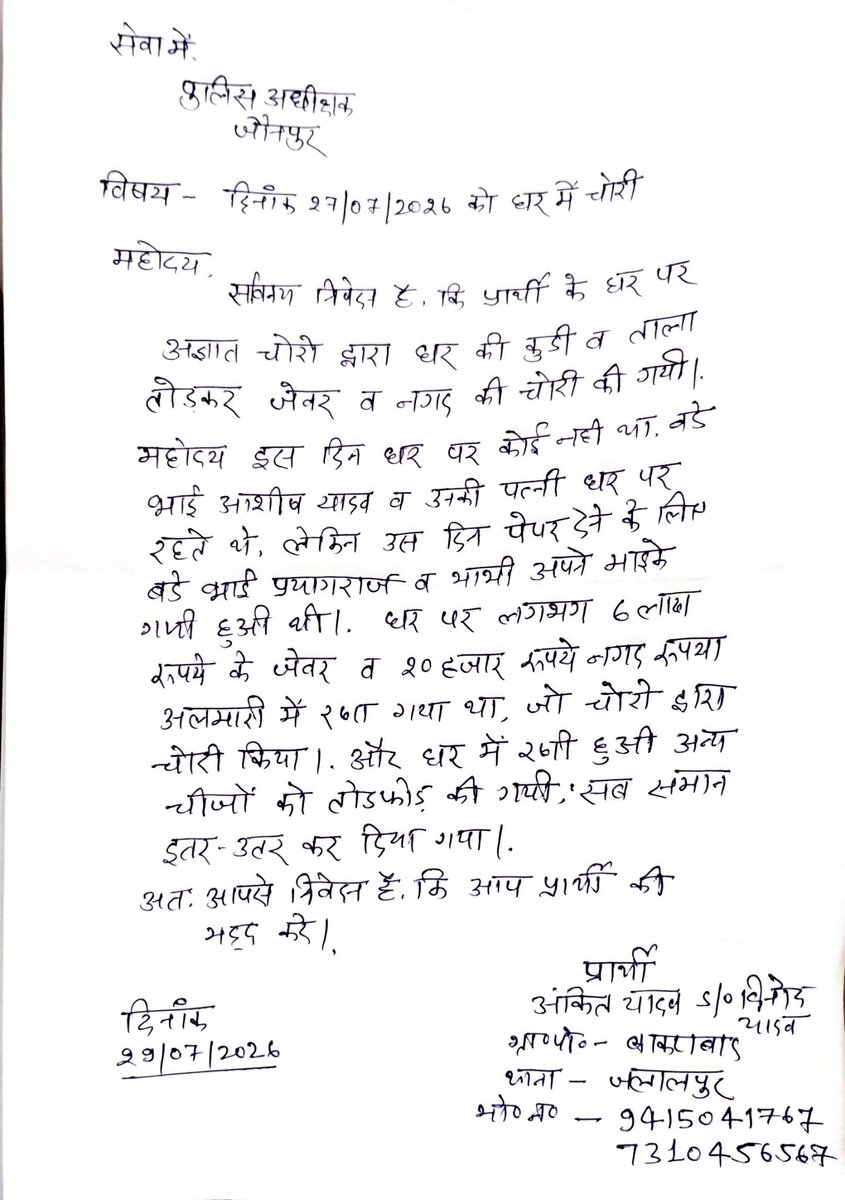 सेवा में,
पुलिस अधीक्षक
जौनपुर
विषय - दिनांक 27/07/2026 को घर में चोरी
महोदय,
सविनय निवेदन है, कि प्रार्थी के घर पर
अज्ञात चोरो द्वारा घर की कुडी व ताला
तोड़कर जेवर व नगद की चोरी की गयी।
महोदय इस दिन घर पर कोई नही था, बडे
भाई आशीष यादव व उनकी पत्नी घर पर
रहते थे, लेकिन उस दिन पेपर देने के लिए
बडे भाई प्रयागराज व भाभी अपने माइके
गयी हुआी थी। घर पर लगभग 6 लाख
रूपये के जेवर व २० हजार रूपये नगद रूपया
अलमारी में रखा गया था, जो चोरो द्वारा
चोरी किया। और घर में रखी हुआी अन्य
चीजों को तोडफोड़ की गयी, सब समान
इतर-उतर कर दिया गया।
अत: आपसे निवेदन है, कि आप प्रार्थी की
मद्द करे।
प्रार्थी
अंकित यादव S/O विनोद
यादव
दिनांक
29/07/2026
ग्रा०पो० - बाकराबाद
थाना - जलालपुर
मो० न० - 9415041767
7310456567